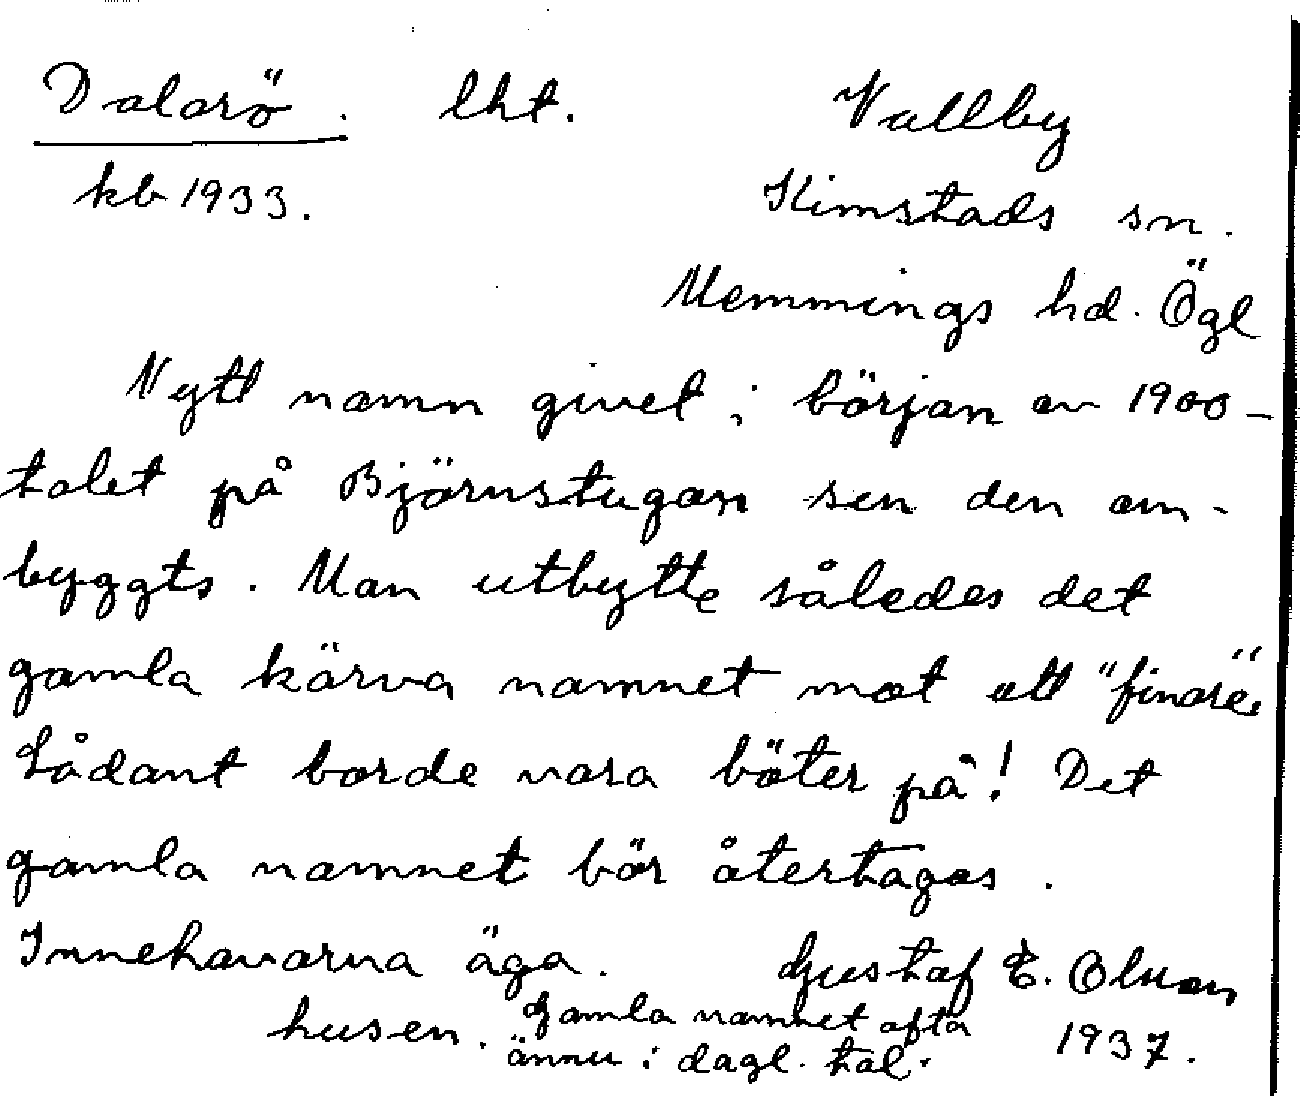 Dalarö. lht. Vallby
kb 1933. Kimstads sn.
Memmings hd. Ögl
Nytt namn givet i början av 1900-
talet på Björnstugan sen den om-
byggts. Man utbytte således det
gamla kärva namnet mot ett "finare"
Sådant borde vara böter på! Det
gamla namnet bör återtagas.
Innehavarna äga. Gustaf E. Olsson
husen. Gamla namnet ofta 1937.
ännu i dagl. tal.